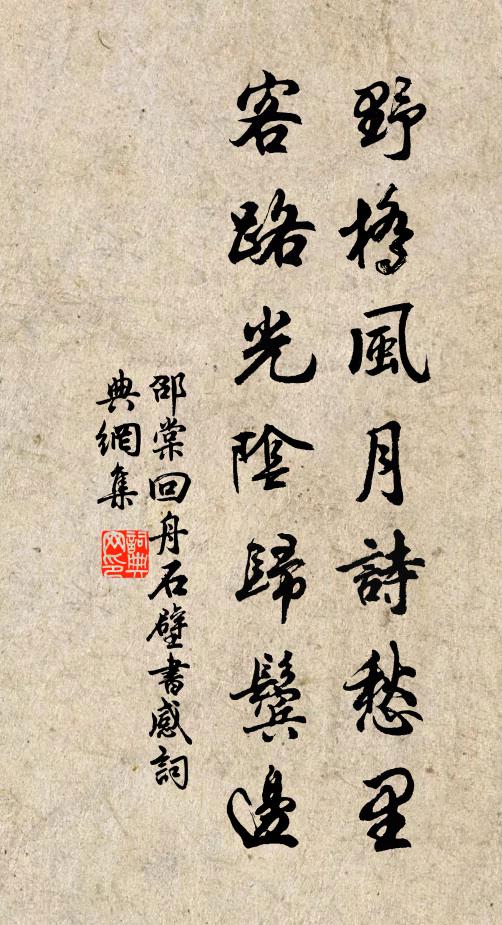 野橋風月詩愁里
客路光陰歸鬢邊
邵棠回舟石壁書感詞
典網集
詞典网印